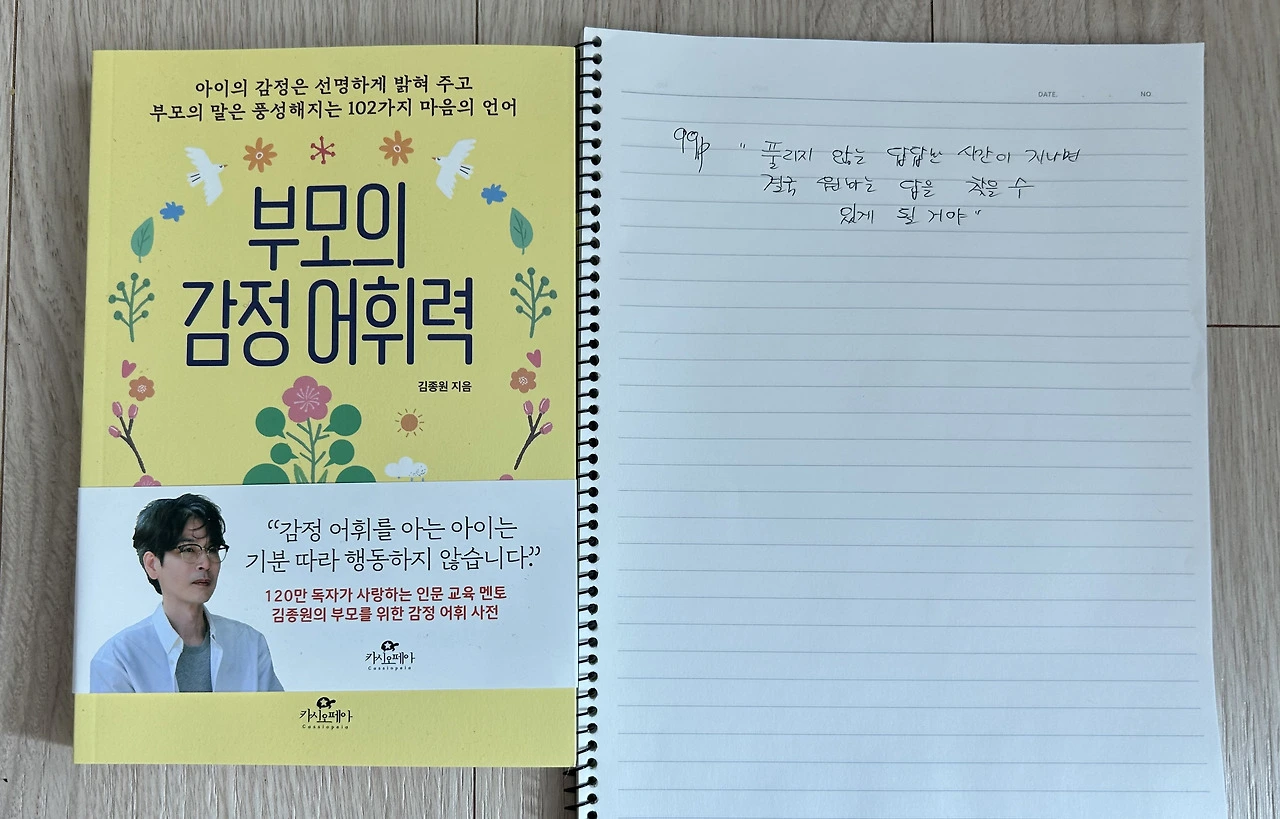 아이의 감정은 선명하게 밝혀 주고
부모의 말은 풍성해지는 102가지 마음의 언어
부모의
감정 어휘력
김종원 지음
“감정 어휘를 아는 아이는
기분 따라 행동하지 않습니다.”
120만 독자가 사랑하는 인문 교육 멘토
김종원의 부모를 위한 감정 어휘 사전
카시오페아
Cassiopeia
카시오페아
Cassiopeia
DATE. NO
99p " 풀리지 않는 답답한 시간이 지나면
결국 원하는 답을 찾을 수
있게 될 거야 "